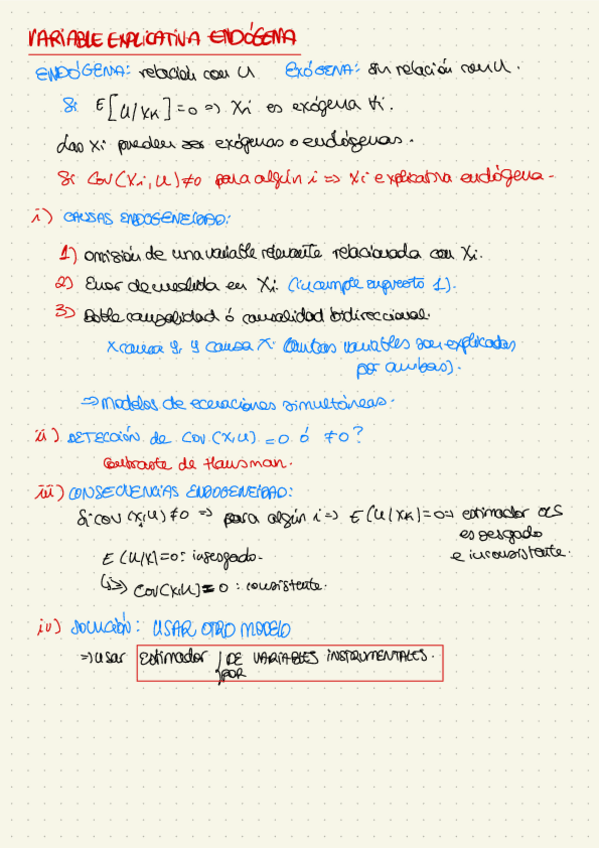 VARIABLE EXPLICATIVA ENDÓGENA
ENDÓGENA: relación con U EXÓGENA: sin relación con U.
Si E[U/XK]=0 => Xi es exógena ∀i.
Las Xi pueden ser exógenas o endógenas.
Si Cov(Xi,U)≠0 para algún i => Xi explicativa endógena.
i) CAUSAS ENDOGENEIDAD:
1) omisión de una variable relevante relacionada con Xi.
2) Error de medida en Xi (incumple supuesto 1).
3) Doble causalidad ó causalidad bidireccional.
X causa Y, Y causa X. (Ambas variables son explicadas
por ambas).
=> Modelos de ecuaciones simultáneas.
ii) DETECCIÓN de Cov(X,U)=0 ó ≠0?
Contraste de Hausman.
iii) CONSECUENCIAS ENDOGENEIDAD:
Si cov(Xi,U)≠0 => para algún i => E(U/XK)=0 => estimador OLS
es sesgado
e inconsistente.
E(U/X)=0: insesgado.
(i=>) Cov(X,U)=0: consistente.
iv) SOLUCIÓN: USAR OTRO MODELO
=> usar estimador / DE VARIABLES INSTRUMENTALES.
POR